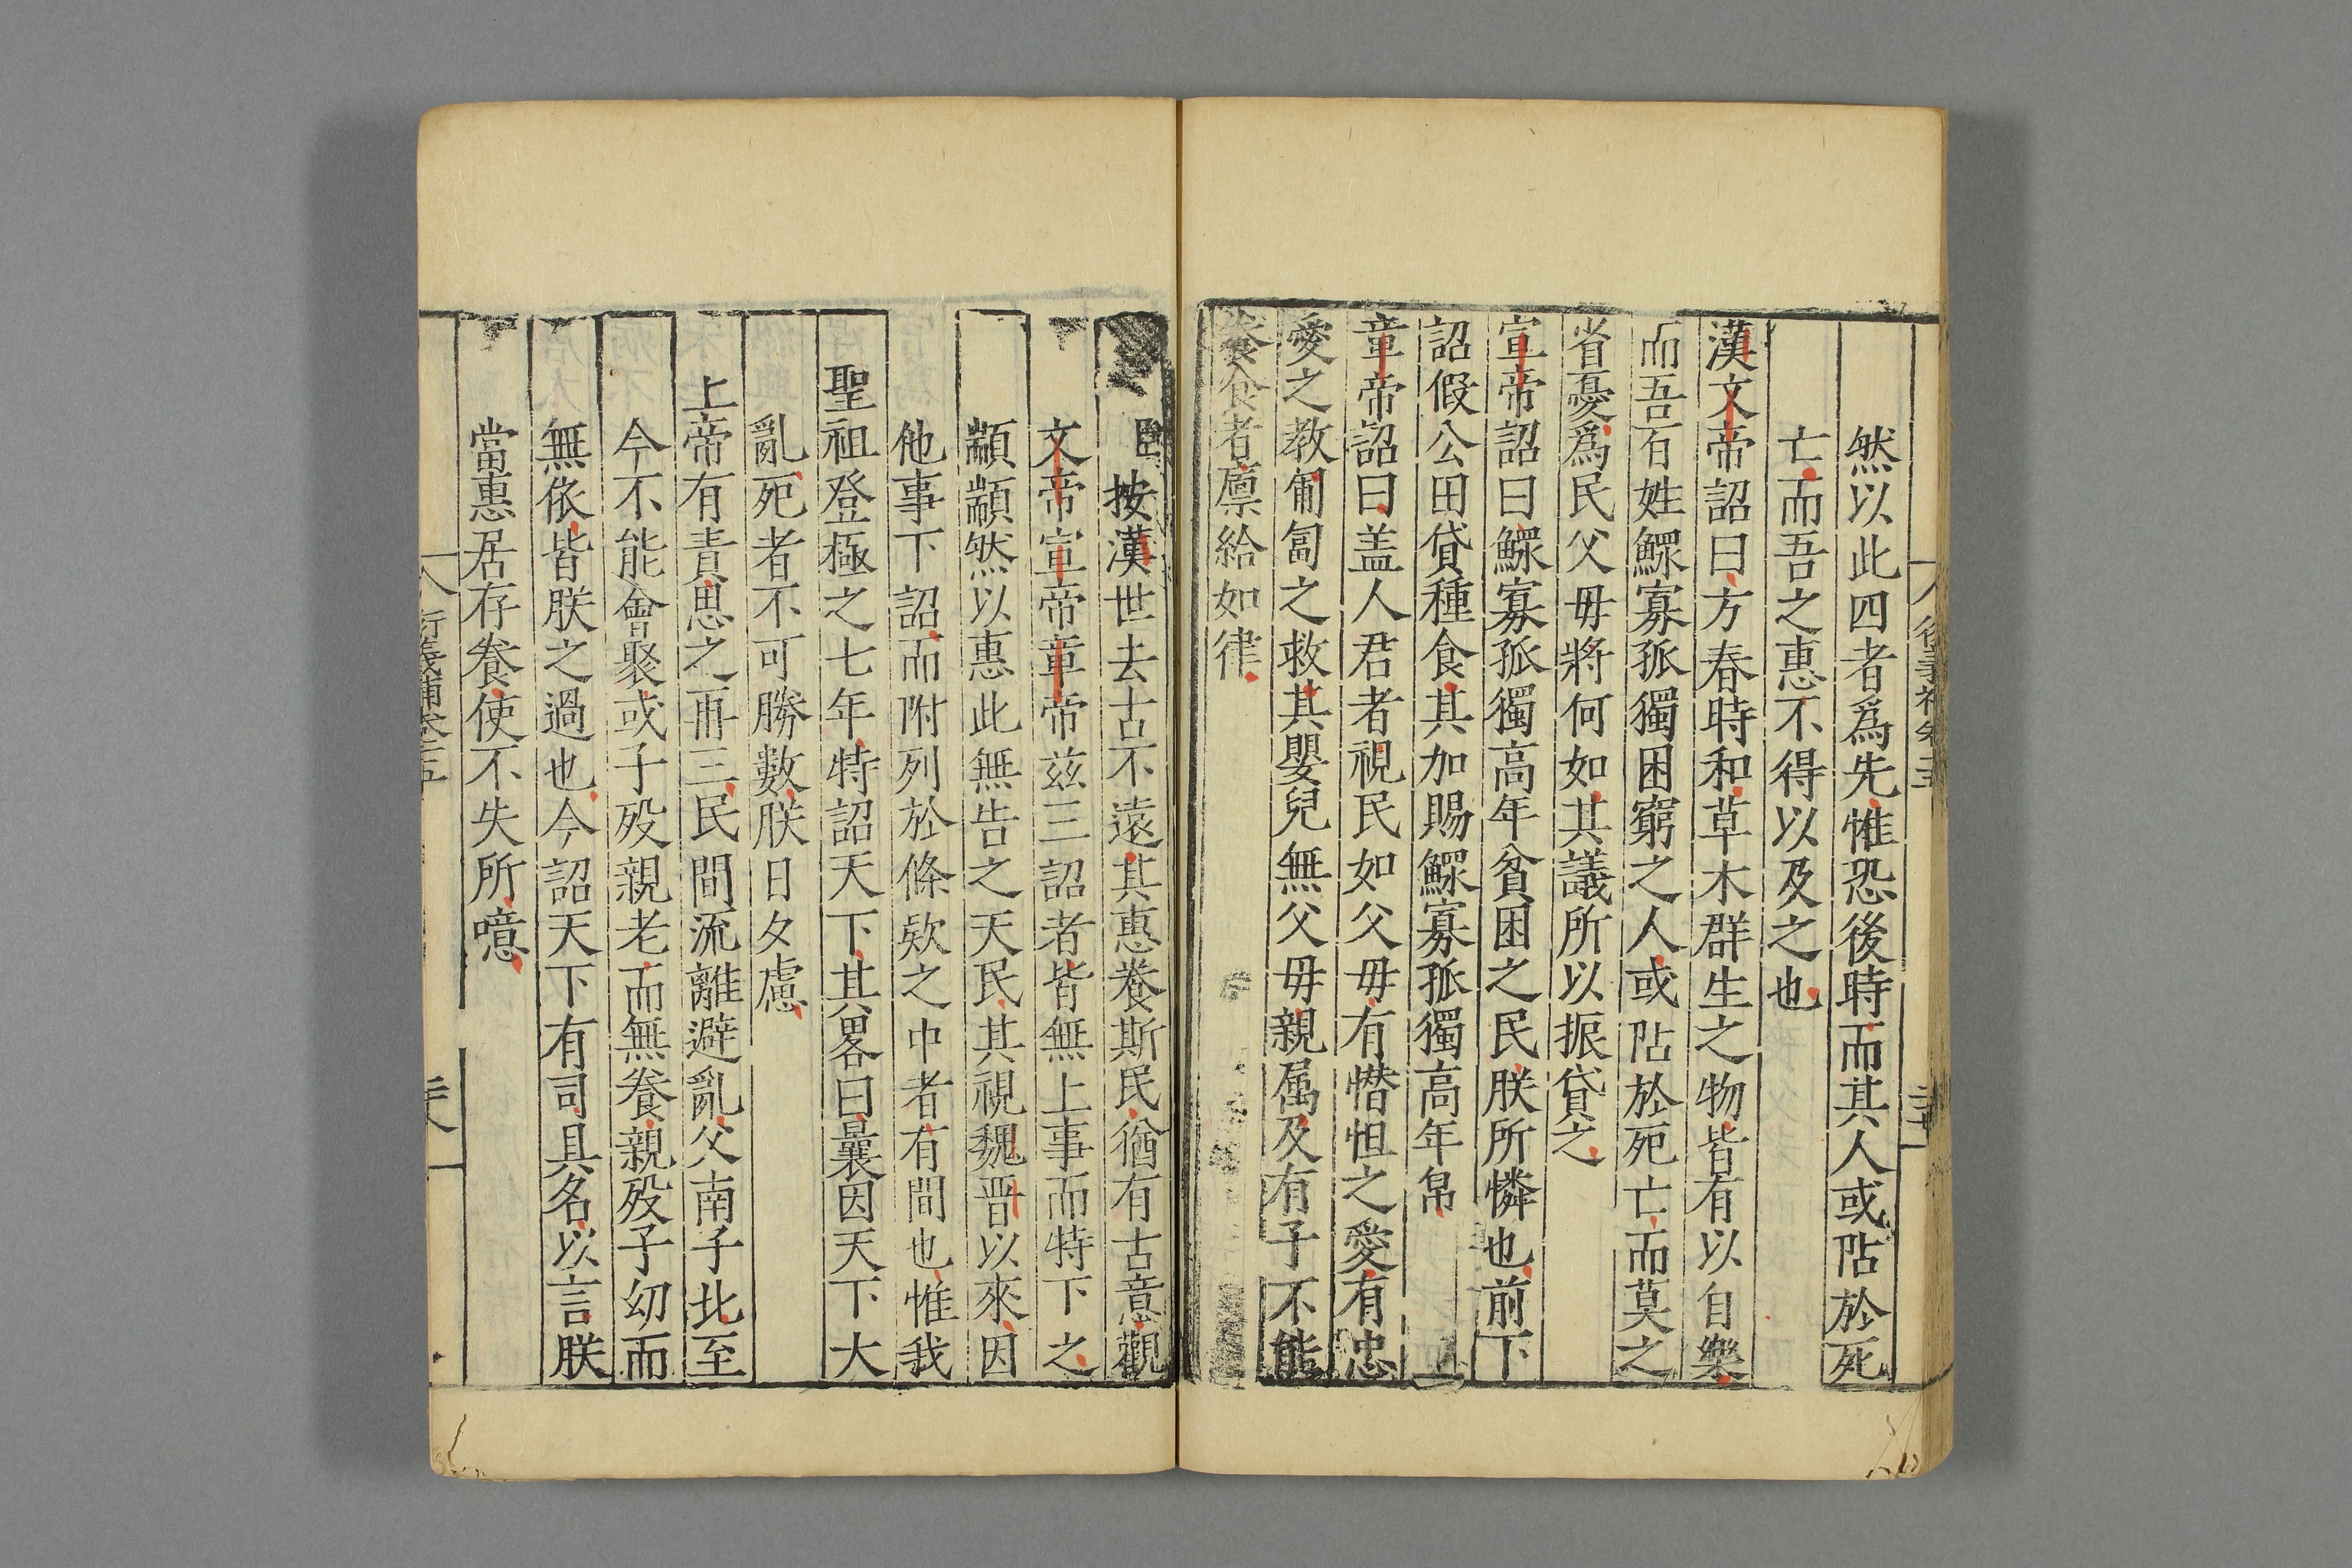 然以此四者爲先惟恐後時而其人或阽於死
亡而吾之惠不得以及之也
漢文帝詔曰方春時和草木群生之物皆有以自樂
而吾百姓鰥寡孤獨困窮之人或阽於死亡而莫之
省憂爲民父毋將何如其議所以振貸之
宣帝詔曰鰥寡孤獨高年貧困之民朕所憐也前下
詔假公田貸種食其加賜鰥寡孤獨高年帛
章帝詔曰盖人君者視民如父毋有憯怛之愛有忠
愛之教匍匐之救其嬰兒無父毋親属及有子不能
養食者廪給如律
臣按漢世去古不遠其惠養斯民猶有古意觀
文帝宣帝章帝兹三詔者皆無上事而特下之
顓顓然以惠此無告之天民其視魏晋以來因
他事下詔而附列於條欵之中者有間也惟我
聖祖登極之七年特詔天下其畧曰曩因天下大
亂死者不可勝數朕日夕慮
上帝有責思之再三民間流離避亂父南子北至
今不能會聚或子殁親老而無養親殁子幼而
無依皆朕之過也今詔天下有司具名以言朕
當惠居存養使不失所噫
衍義補卷十五